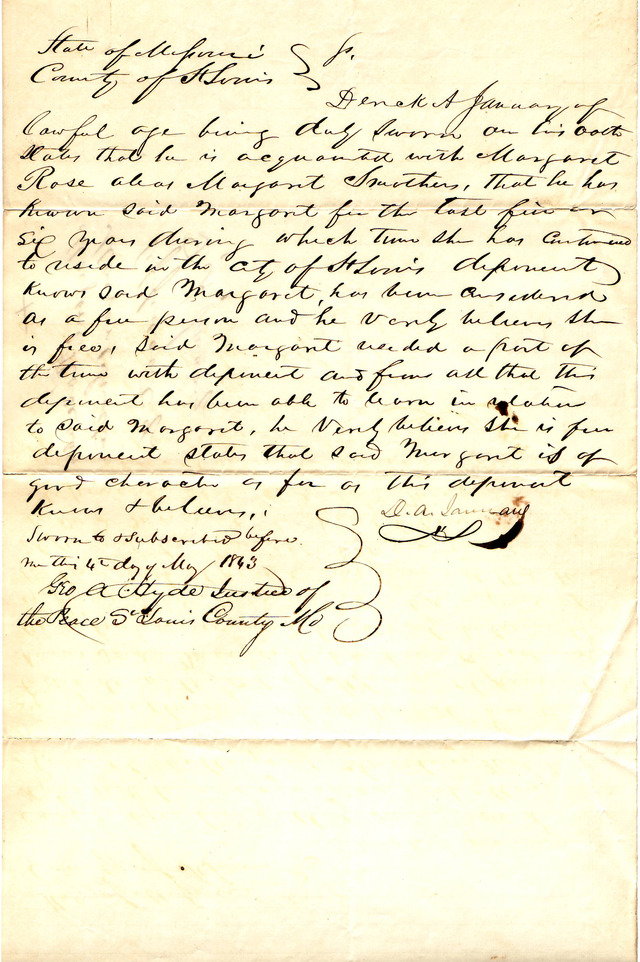 State of Missouri } ss.
County of St Louis
Derick A January of
lawful age being duly sworn on his oath
states that he is acquainted with Margaret
Rose alias Margaret Smothers, that he has
known said Margaret for the last five or
six years during which time she has continued
to reside in the city of St Louis deponent
knows said Margaret, has been considered
as a free person and he verily believes she
is free, said Margaret resided a part of
the time with deponent and from all that this
deponent has been able to learn in relation
to said Margaret, he verily believes she is free
deponent states that said Margaret is of
good character as far as this deponent
knows & believes,
D. A. January
Sworn to & subscribed before
me this 4th day of May 1843
Geo A Hyde Justice of
the Peace St Louis County Mo